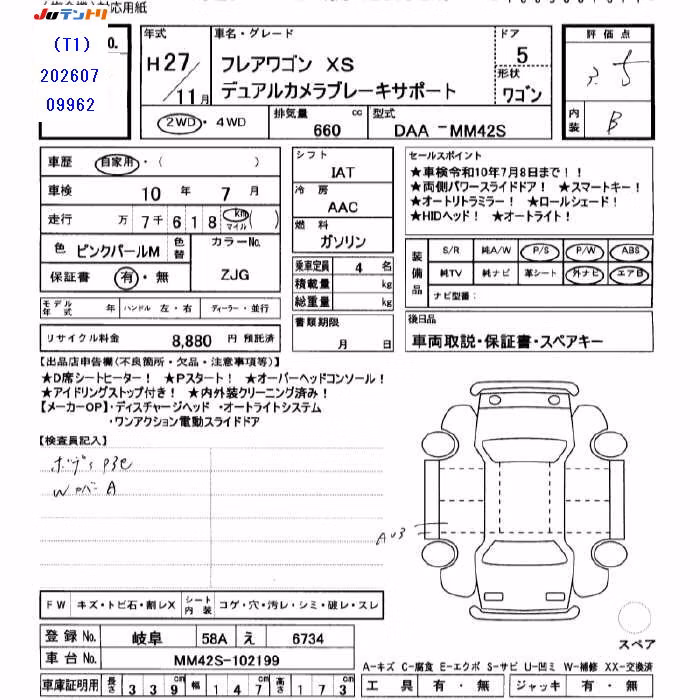 Juテントリ 対応用紙
(T1)
202607
09962
No.
年式 H27/11月
車名・グレード
フレアワゴン XS
デュアルカメラブレーキサポート
ドア 5
形状 ワゴン
評価点
内装 B
2WD・4WD
排気量 660 cc
型式 DAA-MM42S
車歴 自家用・( )
車検 10年 7月
走行 万 7千 6 1 8 km マイル ( )
色 ピンクパールM
色替
カラーNo. ZJG
保証書 有・無
シフト IAT
冷房 AAC
燃料 ガソリン
乗車定員 4 名
積載量 kg
総重量 kg
書類期限 月 日
セールスポイント
★車検令和10年7月8日まで!!
★両側パワースライドドア! ★スマートキー!
★オートリトラミラー! ★ロールシェード!
★HIDヘッド! ★オートライト!
装備品
S/R 純A/W P/S P/W ABS
純TV 純ナビ 革シート 外ナビ エアB
ナビ型番:
モデル年式 年 ハンドル 左・右 ディーラー・並行
リサイクル料金 8,880 円 預託済
後日品
車両取説・保証書・スペアキー
【出品店申告欄(不良箇所・欠品・注意事項等)】
★D席シートヒーター! ★Pスタート! ★オーバーヘッドコンソール!
★アイドリングストップ付き! ★内外装クリーニング済み!
【メーカーOP】・ディスチャージヘッド ・オートライトシステム
・ワンアクション電動スライドドア
【検査員記入】
FW キズ・トビ石・割レX シート内装 コゲ・穴・汚レ・シミ・破レ・スレ
登録No. 岐阜 58A え 6734
車台No. MM42S-102199
車庫証明用 長さ 339cm 幅 147cm 高さ 173cm
スペア
A-キズ C-腐食 E-エクボ S-サビ U-凹ミ W-補修 XX-交換済
工具 有・無 ジャッキ 有・無